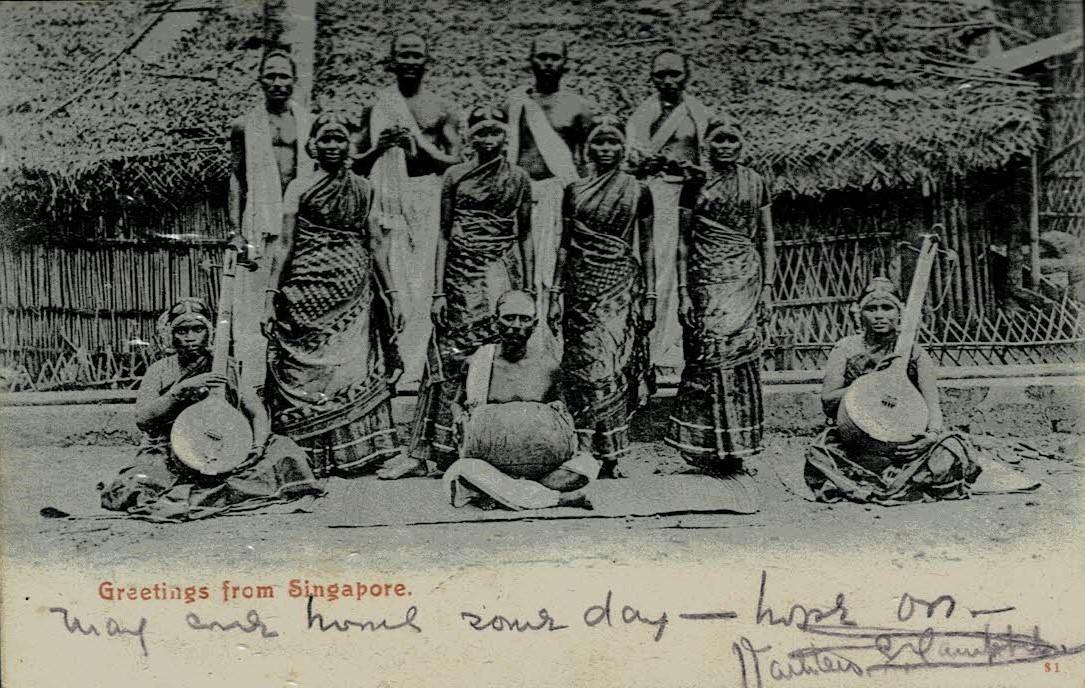 Greetings from Singapore.
may come home some day — hope on —
81